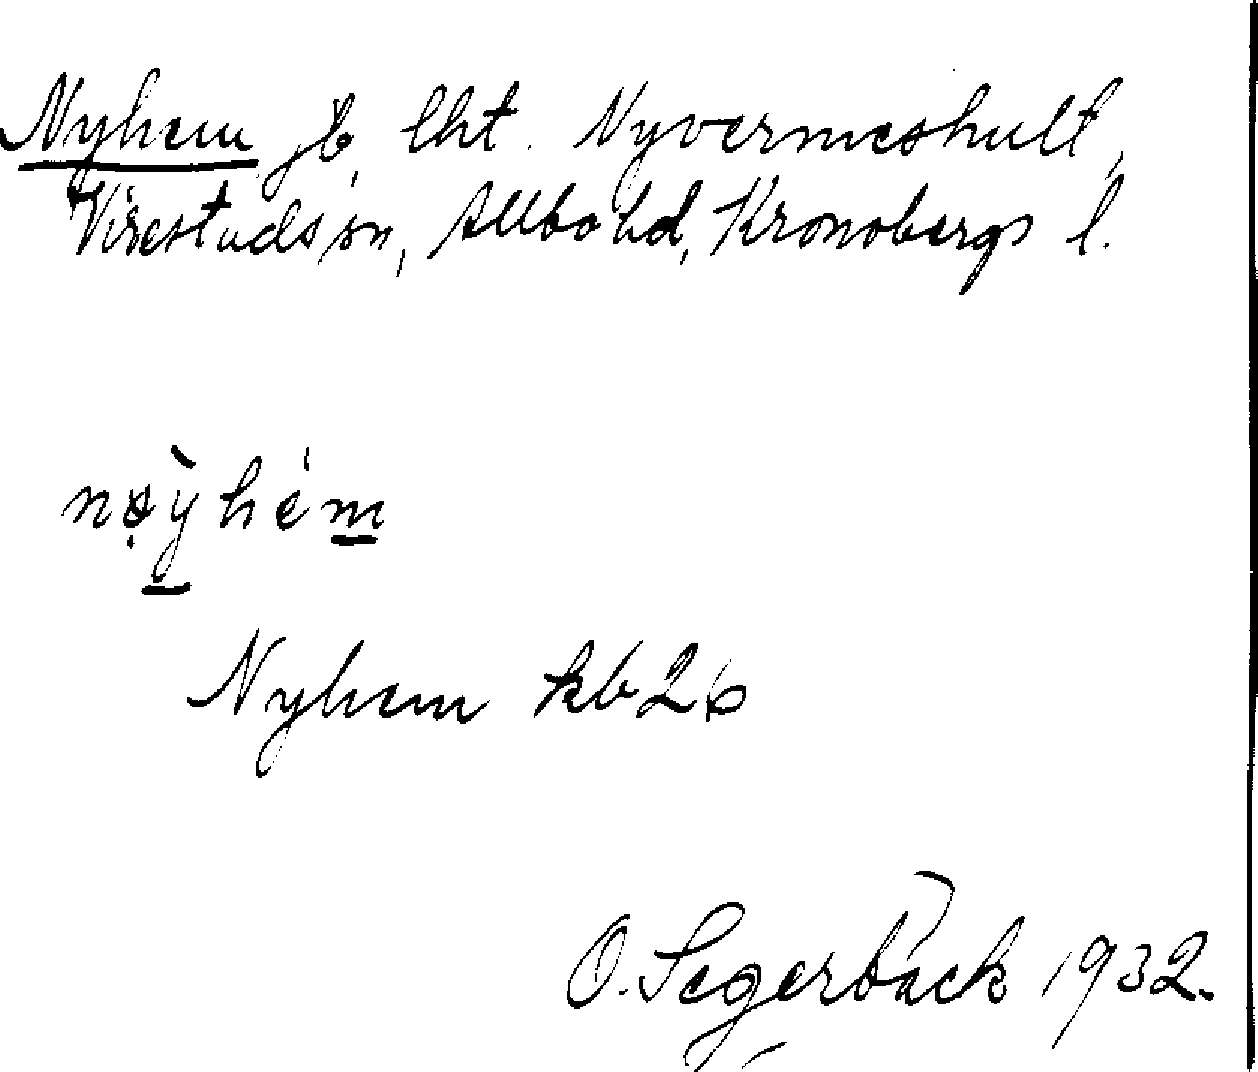 Nyhem jb, lht. Nyvermeshult,
Virestads sn, Allbo hd, Kronobergs l.
nøỳhém
Nyhem kb 26
O. Segerbäck 1932.